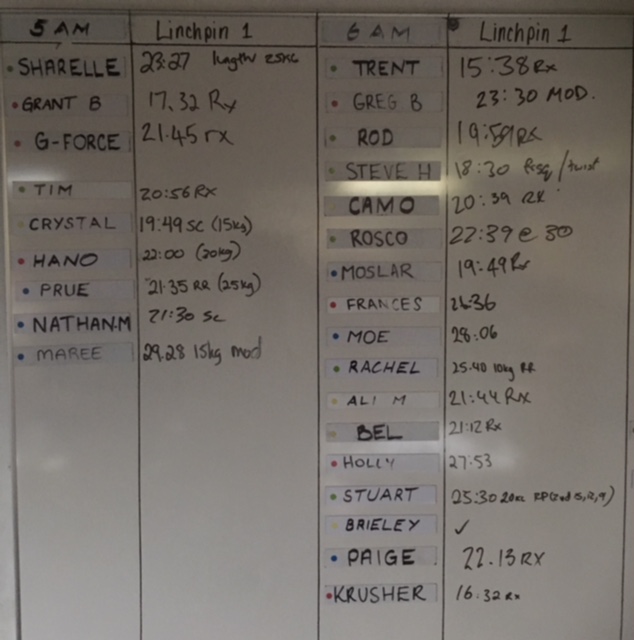 5 AM Linchpin 1
SHARELLE 23:27 25KG
GRANT B 17.32 Rx
G-FORCE 21.45 rx
TIM 20:56 RX
CRYSTAL 19:49 SC (15kg)
HANO 22:00 (20kg)
PRUE 21.35 RR (25kg)
NATHAN.M 21:30 SC
MAREE 29.28 15kg mod
6 AM Linchpin 1
TRENT 15:38 Rx
GREG B 23:30 MOD.
ROD 19:59 RX
STEVE H 18:30 /twist
CAMO 20:39 RX
ROSCO 22:39 @ 30
MOSLAR 19:49 Rx
FRANCES 26:36
MOE 28:06
RACHEL 25.40 10kg RR
ALI M 21:44 RX
BEL 21:12 Rx
HOLLY 27:53
STUART 25:30
BRIELEY ✓
PAIGE 22.13 RX
KRUSHER 16:32 Rx